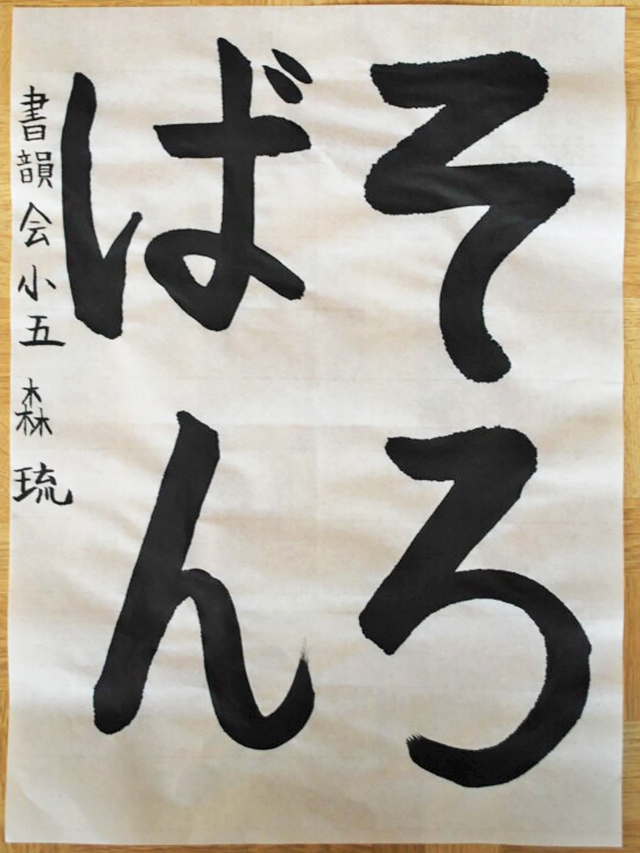 そろ
ばん
書韻会小五 森琉